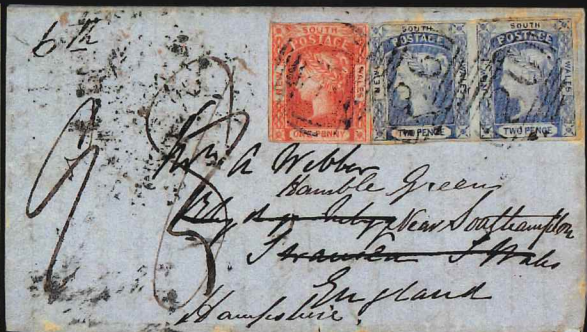 6th
SOUTH
POSTAGE
WALES
ONE PENNY
SOUTH
POSTAGE
NEW
WALES
TWO PENCE
SOUTH
POSTAGE
NEW
WALES
TWO PENCE
Mrs A Webber
Hamble Green
Near Southampton
Swansea S Wales
England
Hampshire